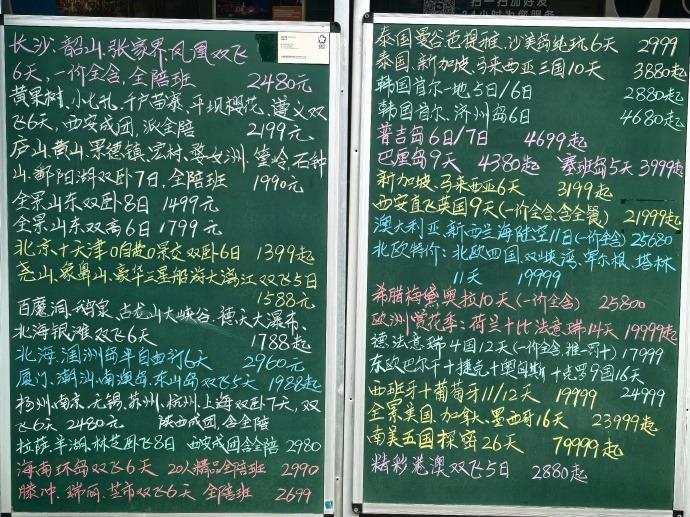 长沙.韶山.张家界.凤凰双飞
6天,一价全含,全陪班 2480元
黄果树.小七孔.千户苗寨.平坝樱花.遵义双
飞6天,西安成团,派全陪 2199元.
庐山.黄山.景德镇.宏村.婺女洲.篁岭.石钟
山.鄱阳湖双卧7日.全陪班 1990元
全景山东双卧8日 1499元
全景山东双高6日 1799元
北京+天津0自费0景交双卧6日 1399起
尧山.象鼻山.豪华三星船游大漓江双飞5日
1588元
百魔洞.鹅泉.古龙山大峡谷.德天大瀑布.
北海银滩双飞6天 1788起
北海.涠洲岛半自由行6天 2960元
厦门.潮汕.南澳岛.东山岛双飞5天 1988起
扬州.南京.无锡.苏州.杭州.上海双卧7天,双
飞6天2480元 陕西成团,含全陪
拉萨.羊湖.林芝卧飞8日 西安成团含全陪 2980
海南环岛双飞6天 20人精品全陪班 2990
腾冲.瑞丽.芒市双飞6天 全陪班 2699
扫一扫加好友
24小时为您服务
泰国曼谷芭提雅.沙美岛纯玩6天 2999
泰国.新加坡.马来西亚三国10天 3880起
韩国首尔一地5日/6日 2880起
韩国首尔.济州岛6日 4680起
普吉岛6日/7日 4699起
巴厘岛9天 4380起 塞班岛5天3999起
新加坡.马来西亚6天 3199起
西安直飞英国9天(一价全含,含全餐) 21999起
澳大利亚.新西兰海陆空11日(一价全含)25680
北欧特价:北欧四国.双峡湾.卑尔根.塔林
11天 19999
希腊梅黛奥拉10天(一价全含) 25800
欧洲赏花季:荷兰+比法意瑞14天 19999起
德法意瑞4国12天(一价全含,推一罚十)17999
东欧巴尔干+捷克+奥匈斯+克罗9国16天
24999
西班牙+葡萄牙11/12天 19999
全景美国.加拿.墨西哥16天 23999起
南美五国探密26天 79999起
精彩港澳双飞5日 2880起